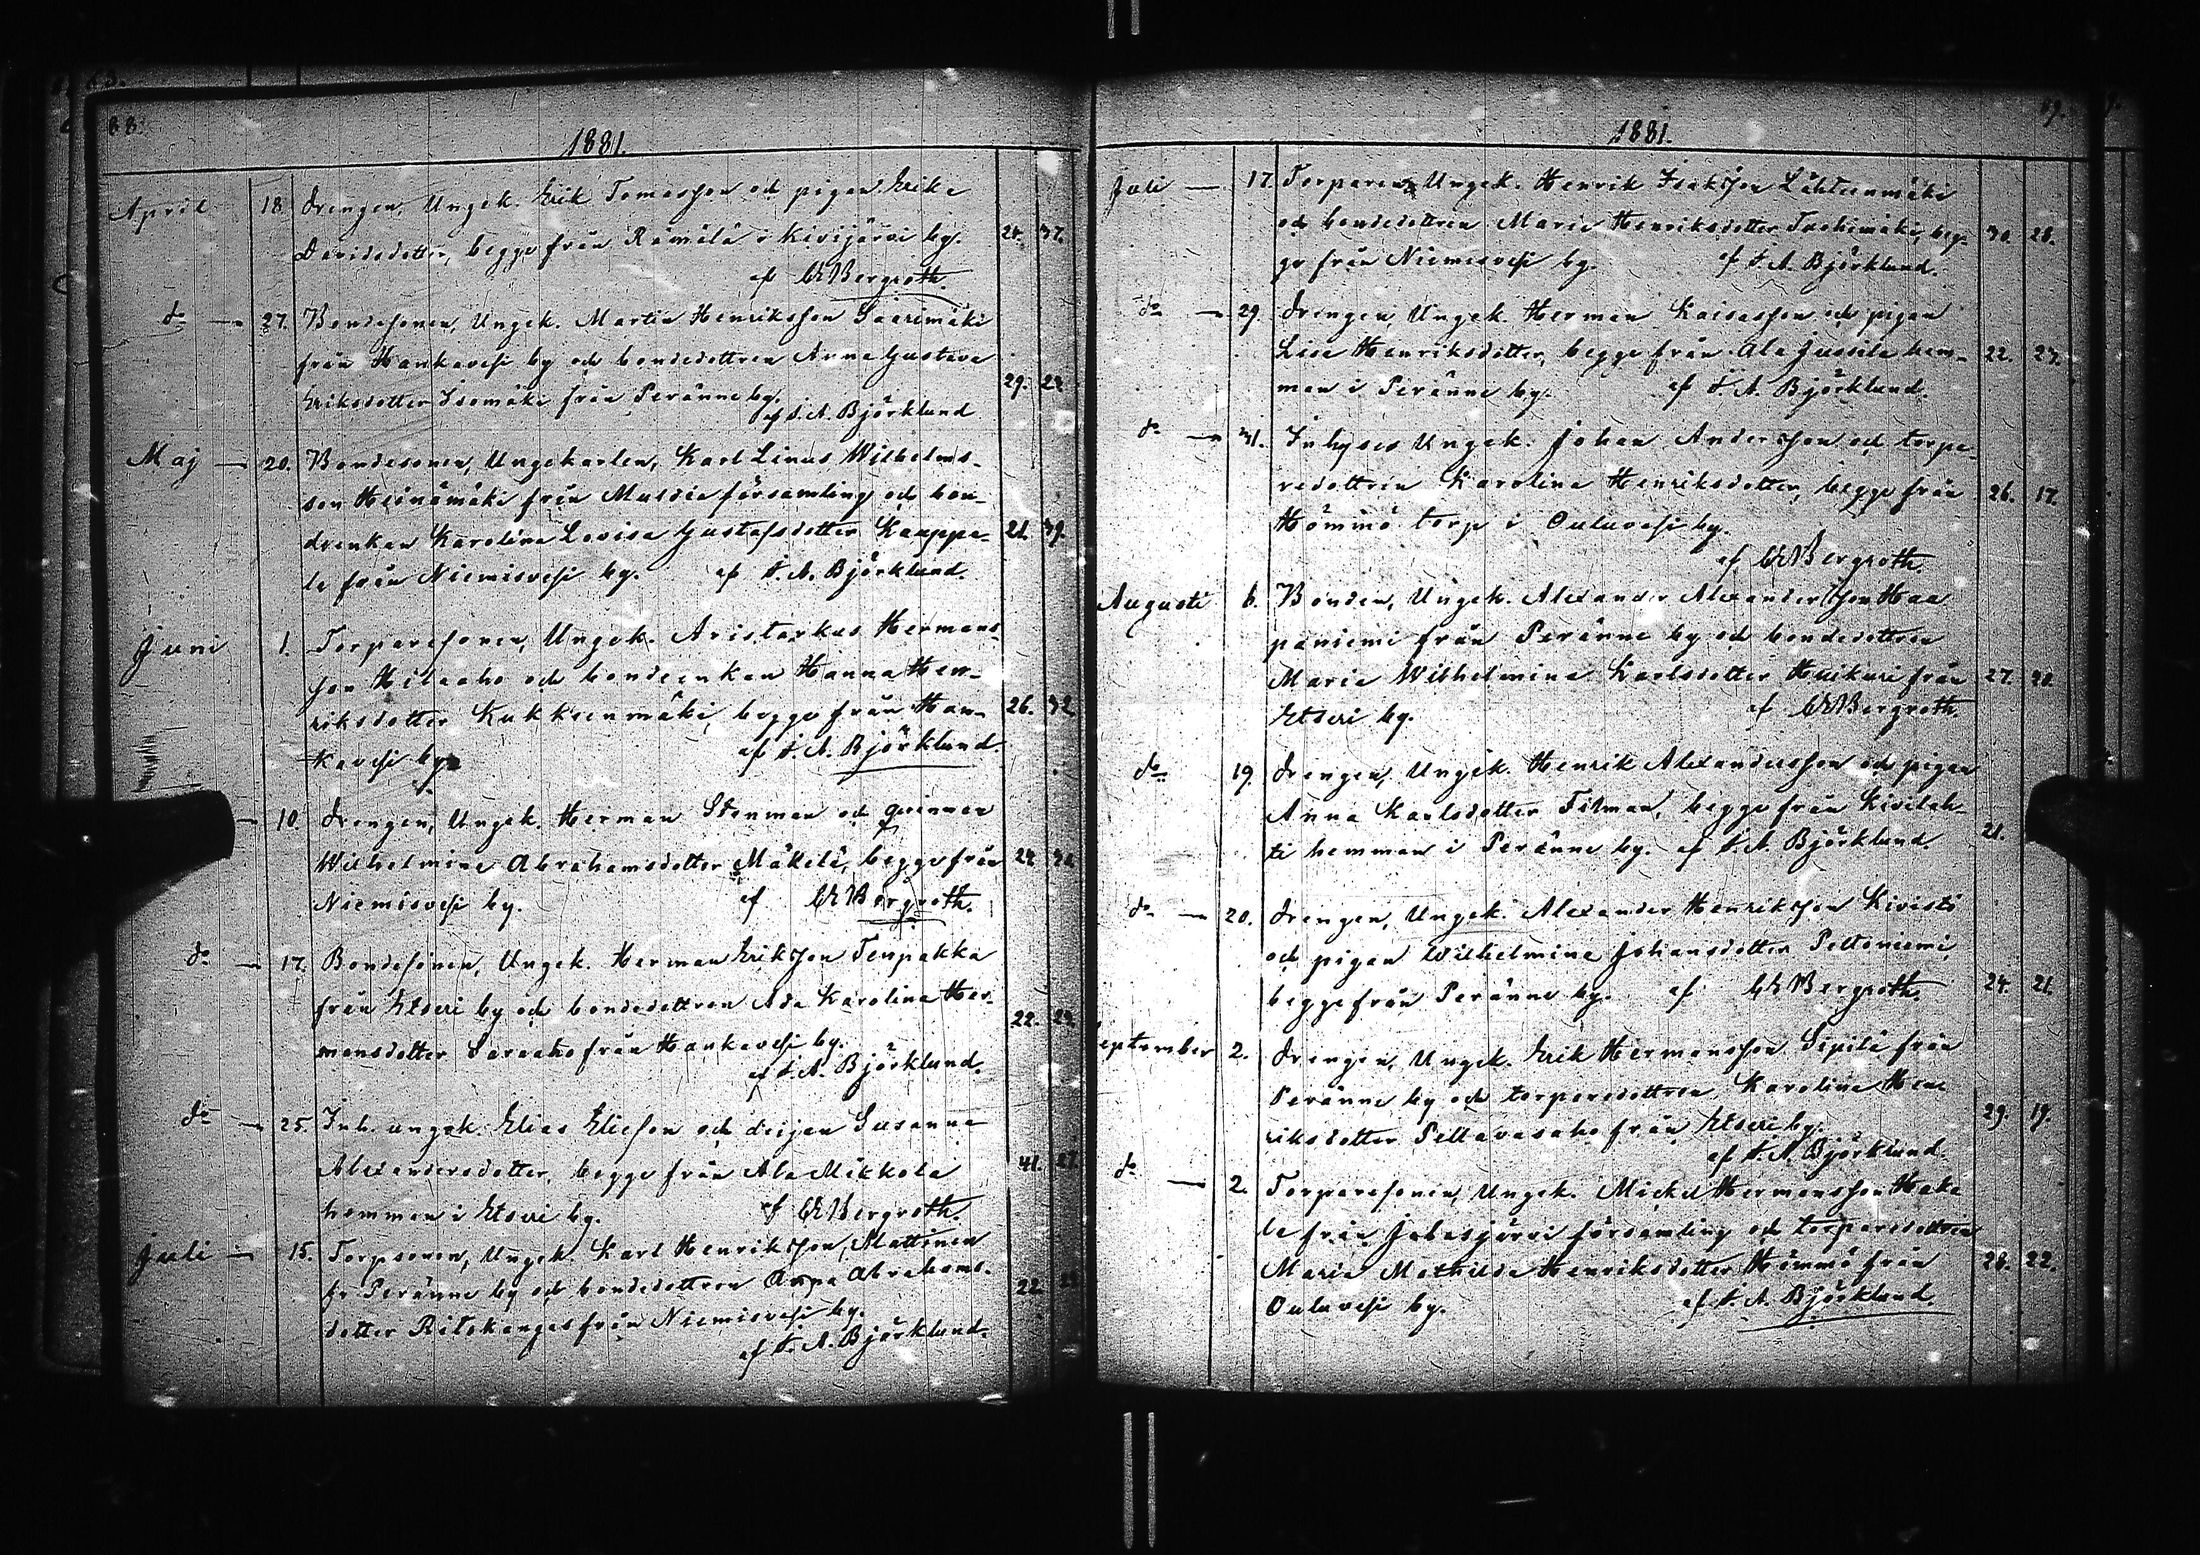 88.
1881.
April 18 Drengen, Ungek. Erik Tomasson och pigan Erika
Davidsdotter, begge från Rämälä i Kivijärvi by. 24. 37.
af CEBergroth.
do — 27. Bondesonen, Ungek. Martin Henriksson Saarimäki
från Hankavesi by och bondedottren Anna Gustava
Eriksdotter Isomäki från Peränne by. 29. 22.
af F. A. Björklund
Maj — 20. Bondesonen, Ungekarlen, Karl Linus Wilhelms-
son Heinämäki från Multia församling och bon-
deenkan Karolina Lovisa Gustafsdotter Kauppa- 21. 39.
la från Niemisvesi by. af F. A. Björklund.
Juni 1. Torparesonen, Ungek. Aristarkus Hermans-
son Hiluaho och bondeenkan Hanna Hen-
riksdotter Kukkeenmäki, begge från Han- 26. 32
kavesi by
af F. A. Björklund.
— 10. Drengen, Ungek. Herman Stenman och qvinnan
Wilhelmina Abrahamsdotter Mäkelä, begge från 24. 32.
Niemisvesi by. af CEBergroth.
do — 17. Bondesonen, Ungek. Herman Eriksson Tenpakka
från Etseri by och bondedottren Ada Karolina Her-
mansdotter Saraaho från Hankavesi by. 22. 23.
af F. A. Björklund.
do — 25. Inh. ungek. Elias Eliasson och deijan Susanna
Alexandersdotter, begge från Ala Mikkola 41. 27.
hemman i Etseri by. af CEBergroth.
Juli — 15. Torpsonen, Ungek. Karl Henriksson, Mattinen
fr Peränne by och bondedottren Anna Abrahams- 22.
dotter Ritokangas från Niemisvesi by.
af F. A. Björklund.
89.
1881.
Juli — 17. Torparen, Ungek. Henrik Isaksson Lähteenmäki
och bondedottren Maria Henriksdotter Tuohimäki, beg- 30. 28.
ge från Niemisvesi by. af F. A. Björklund.
do — 29. Drengen, Ungek. Herman Kaisasson och pigan
Lisa Henriksdotter, begge från Ala Jussila hem- 22. 27.
man i Peränne by. af F. A. Björklund.
do — 31. Inhyses Ungek. Johan Andersson och torpa-
redottren Karolina Henriksdotter, begge från 26. 17.
Hömmö torp i Ouluvesi by.
af CEBergroth.
Augusti 6. Bonden, Ungek. Alexander Alexandersson Haa
paniemi från Peränne by och bondedottren
Maria Wilhelmina Karlsdotter Huikuri från 27. 20.
Etseri by. af CEBergroth.
do 19. Drengen, Ungek. Henrik Alexandersson och pigan
Anna Karlsdotter Filman, begge från Kivilah-
ti hemman i Peränne by. af F. A. Björklund 21.
do — 20. Drengen, Ungek. Alexander Henriksson Kivistö
och pigan Wilhelmina Johansdotter Peltoniemi,
begge från Peränne by. af CEBergroth. 24. 21.
September 2. Drengen, Ungek. Erik Hermansson Sipilä från
Peränne by och torparedottren Karolina Hen
riksdotter Peltavasaho från Etseri by. 29. 19.
af F. A. Björklund.
do — 2. Torparesonen, Ungek. Mickel Hermansson Haka
la från Jalasjärvi församling och torparedottren
Maria Mathilda Henriksdotter Hömmö från 28. 22.
Ouluvesi by. af F. A. Björklund.